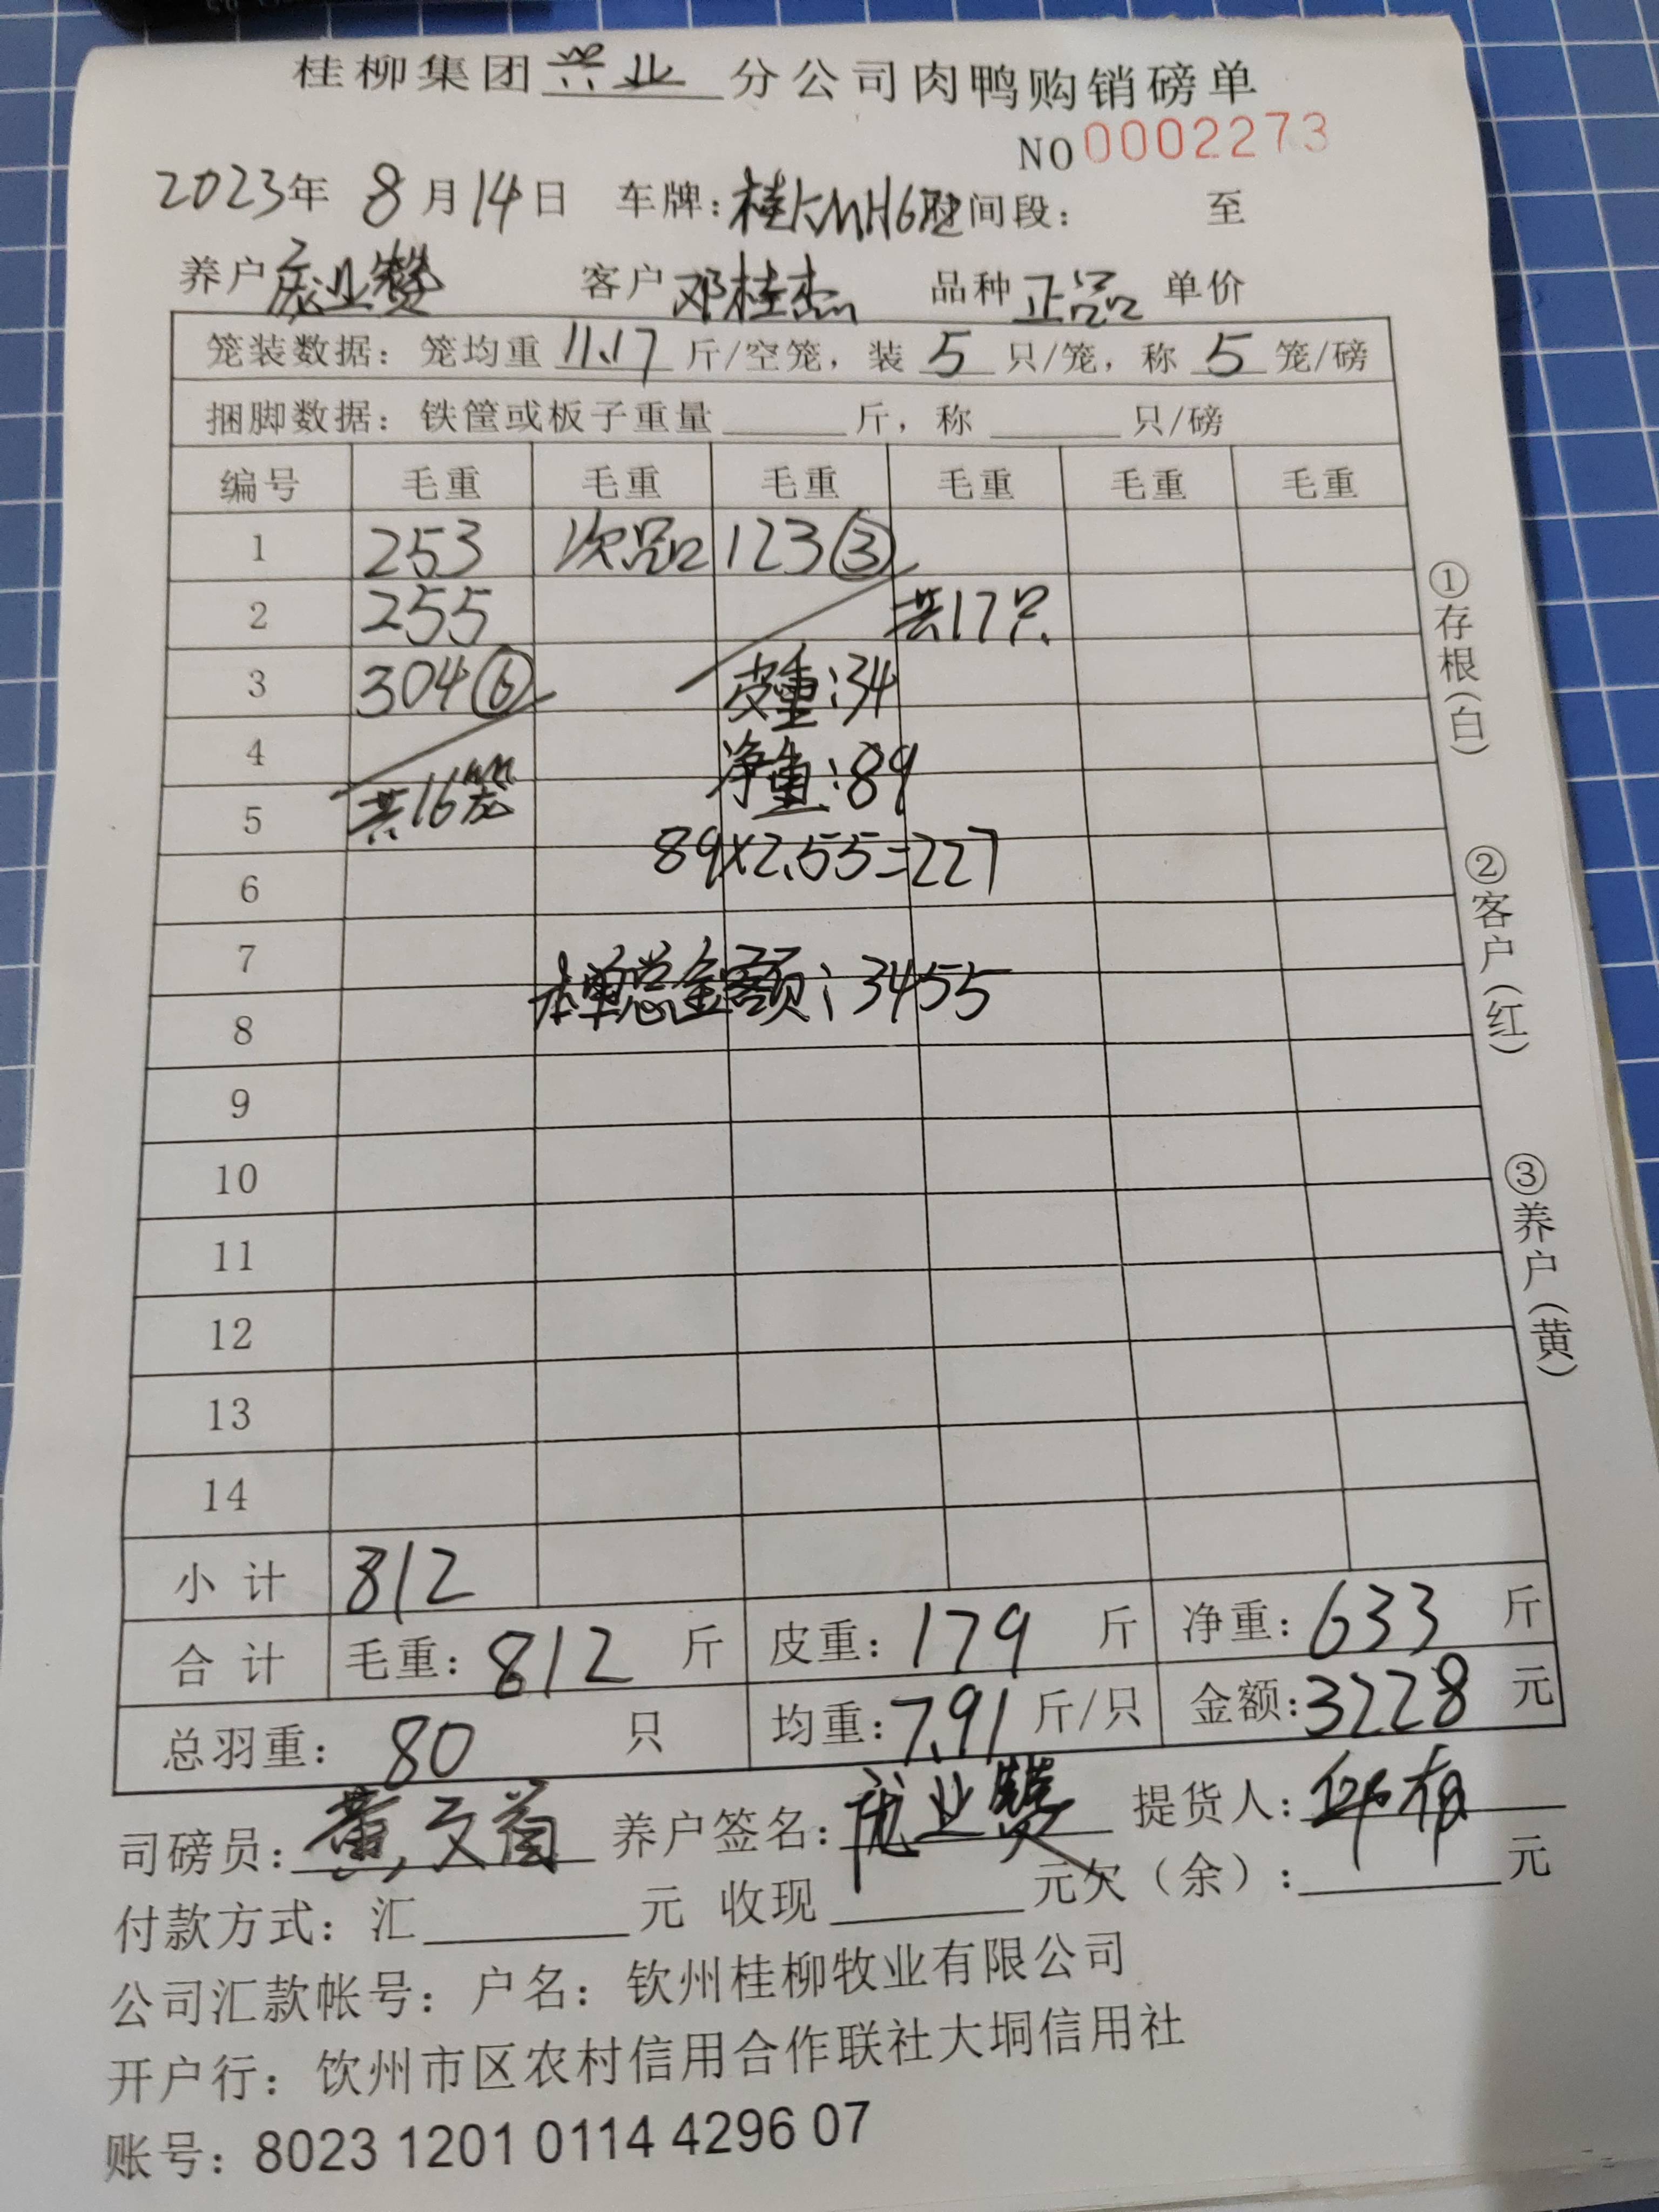 桂柳集团兴业分公司肉鸭购销磅单
NO 0002273
2023年 8月14日 车牌:桂 时间段: 至
养户 庞业赞 客户 邓桂杰 品种 正品 单价
笼装数据: 笼均重 11.17 斤/空笼, 装 5 只/笼, 称 5 笼/磅
捆脚数据: 铁筐或板子重量 斤, 称 只/磅
编号 毛重 毛重 毛重 毛重 毛重 毛重
1 253 次品 123③
2 255 共17只
3 304⑥ 皮重:34
4 净重:89
5 共16笼
6 89×2.55=227
7
本单总金额:3455
8
9
10
11
12
13
14
小计 812
合计 毛重: 812 斤 皮重: 179 斤 净重: 633 斤
总羽重: 80 只 均重:7.91 斤/只 金额:3228 元
司磅员: 黄文首 养户签名: 庞业赞 提货人:
付款方式: 汇 元 收现 元欠(余): 元
公司汇款帐号: 户名: 钦州桂柳牧业有限公司
开户行: 饮州市区农村信用合作联社大垌信用社
账号: 8023 1201 0114 4296 07
①存根(白)
②客户(红)
③养户(黄)